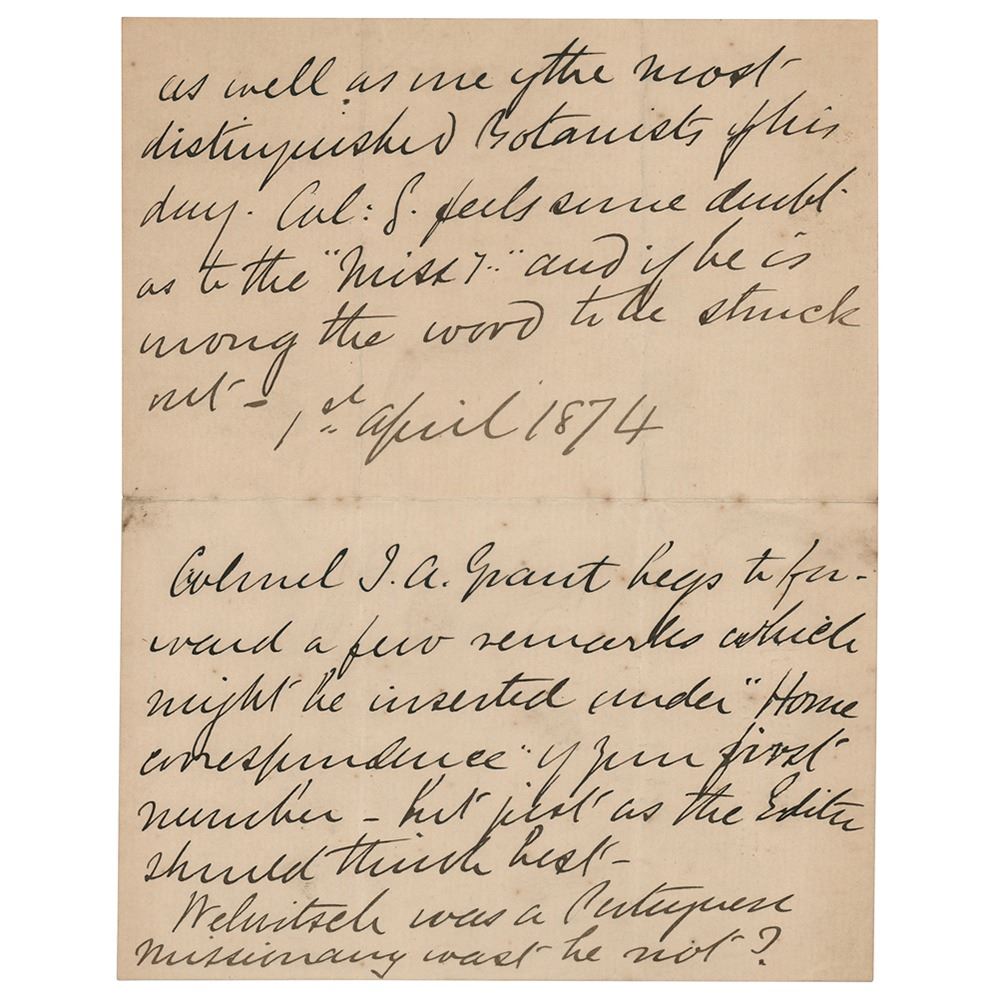 as well as one of the most
distinguished Botanists of his
day. Col: G. feels some doubt
as to the "Missy." and if he is
wrong the word to be struck
out -
1st April 1874
Colonel J. A. Grant begs to for-
ward a few remarks which
might be inserted under "Home
correspondence" of your first
number - but just as the Editor
should think best -
Welwitsch was a Portuguese
missionary was he not?